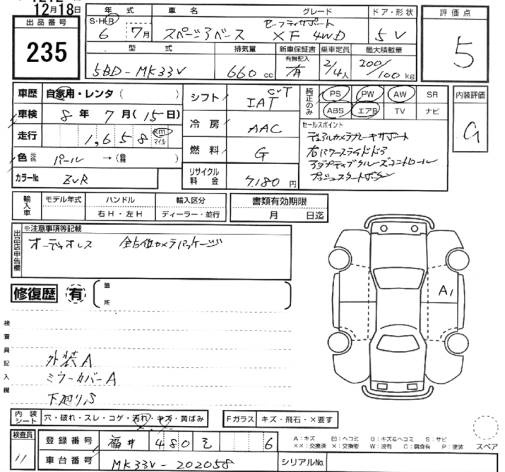 12月18日
出品番号
235
年式 車名 グレード ドア・形状
S・H・R 6 7月 スペーシアベース セーフティサポート XF 4WD 5V
型式 排気量 新車保証書 乗車定員 最大積載量
有無記入
5BD-MK33V 660cc 有 2/4人 200/100kg
評価点
5
車歴 自家用・レンタ
車検 8年 7月(15日)
走行 1,658 km マイル
色 パール→
カラーNo. ZVR
シフト IAT
冷房 AAC
燃料 G
リサイクル料金 7,180円
純正のみ
PS PW AW SR
ABS エアB TV ナビ
内装評価
セールスポイント
デュアルカメラブレーキサポート
右パワースライドドア
アダプティブクルーズコントロール
プッシュスタートボタン
輸入車 モデル年式 ハンドル 輸入区分
年 右H・左H ディーラー・並行
書類有効期限
月 日迄
出品店申告欄
※注意事項等記載
オーディオレス 全方位カメラパッケージ
修復歴 有 箇所
検査員記入欄
外装A
ミラーカバーA
下廻りS
A1
内装シート 穴・破れ・スレ・コゲ・汚れ・キズ・黄ばみ
Fガラス キズ・飛石・×要す
検査員 11
登録番号 福井 480 え 6
車台番号 MK33V-202058
シリアルNo.
A:キズ
スペア